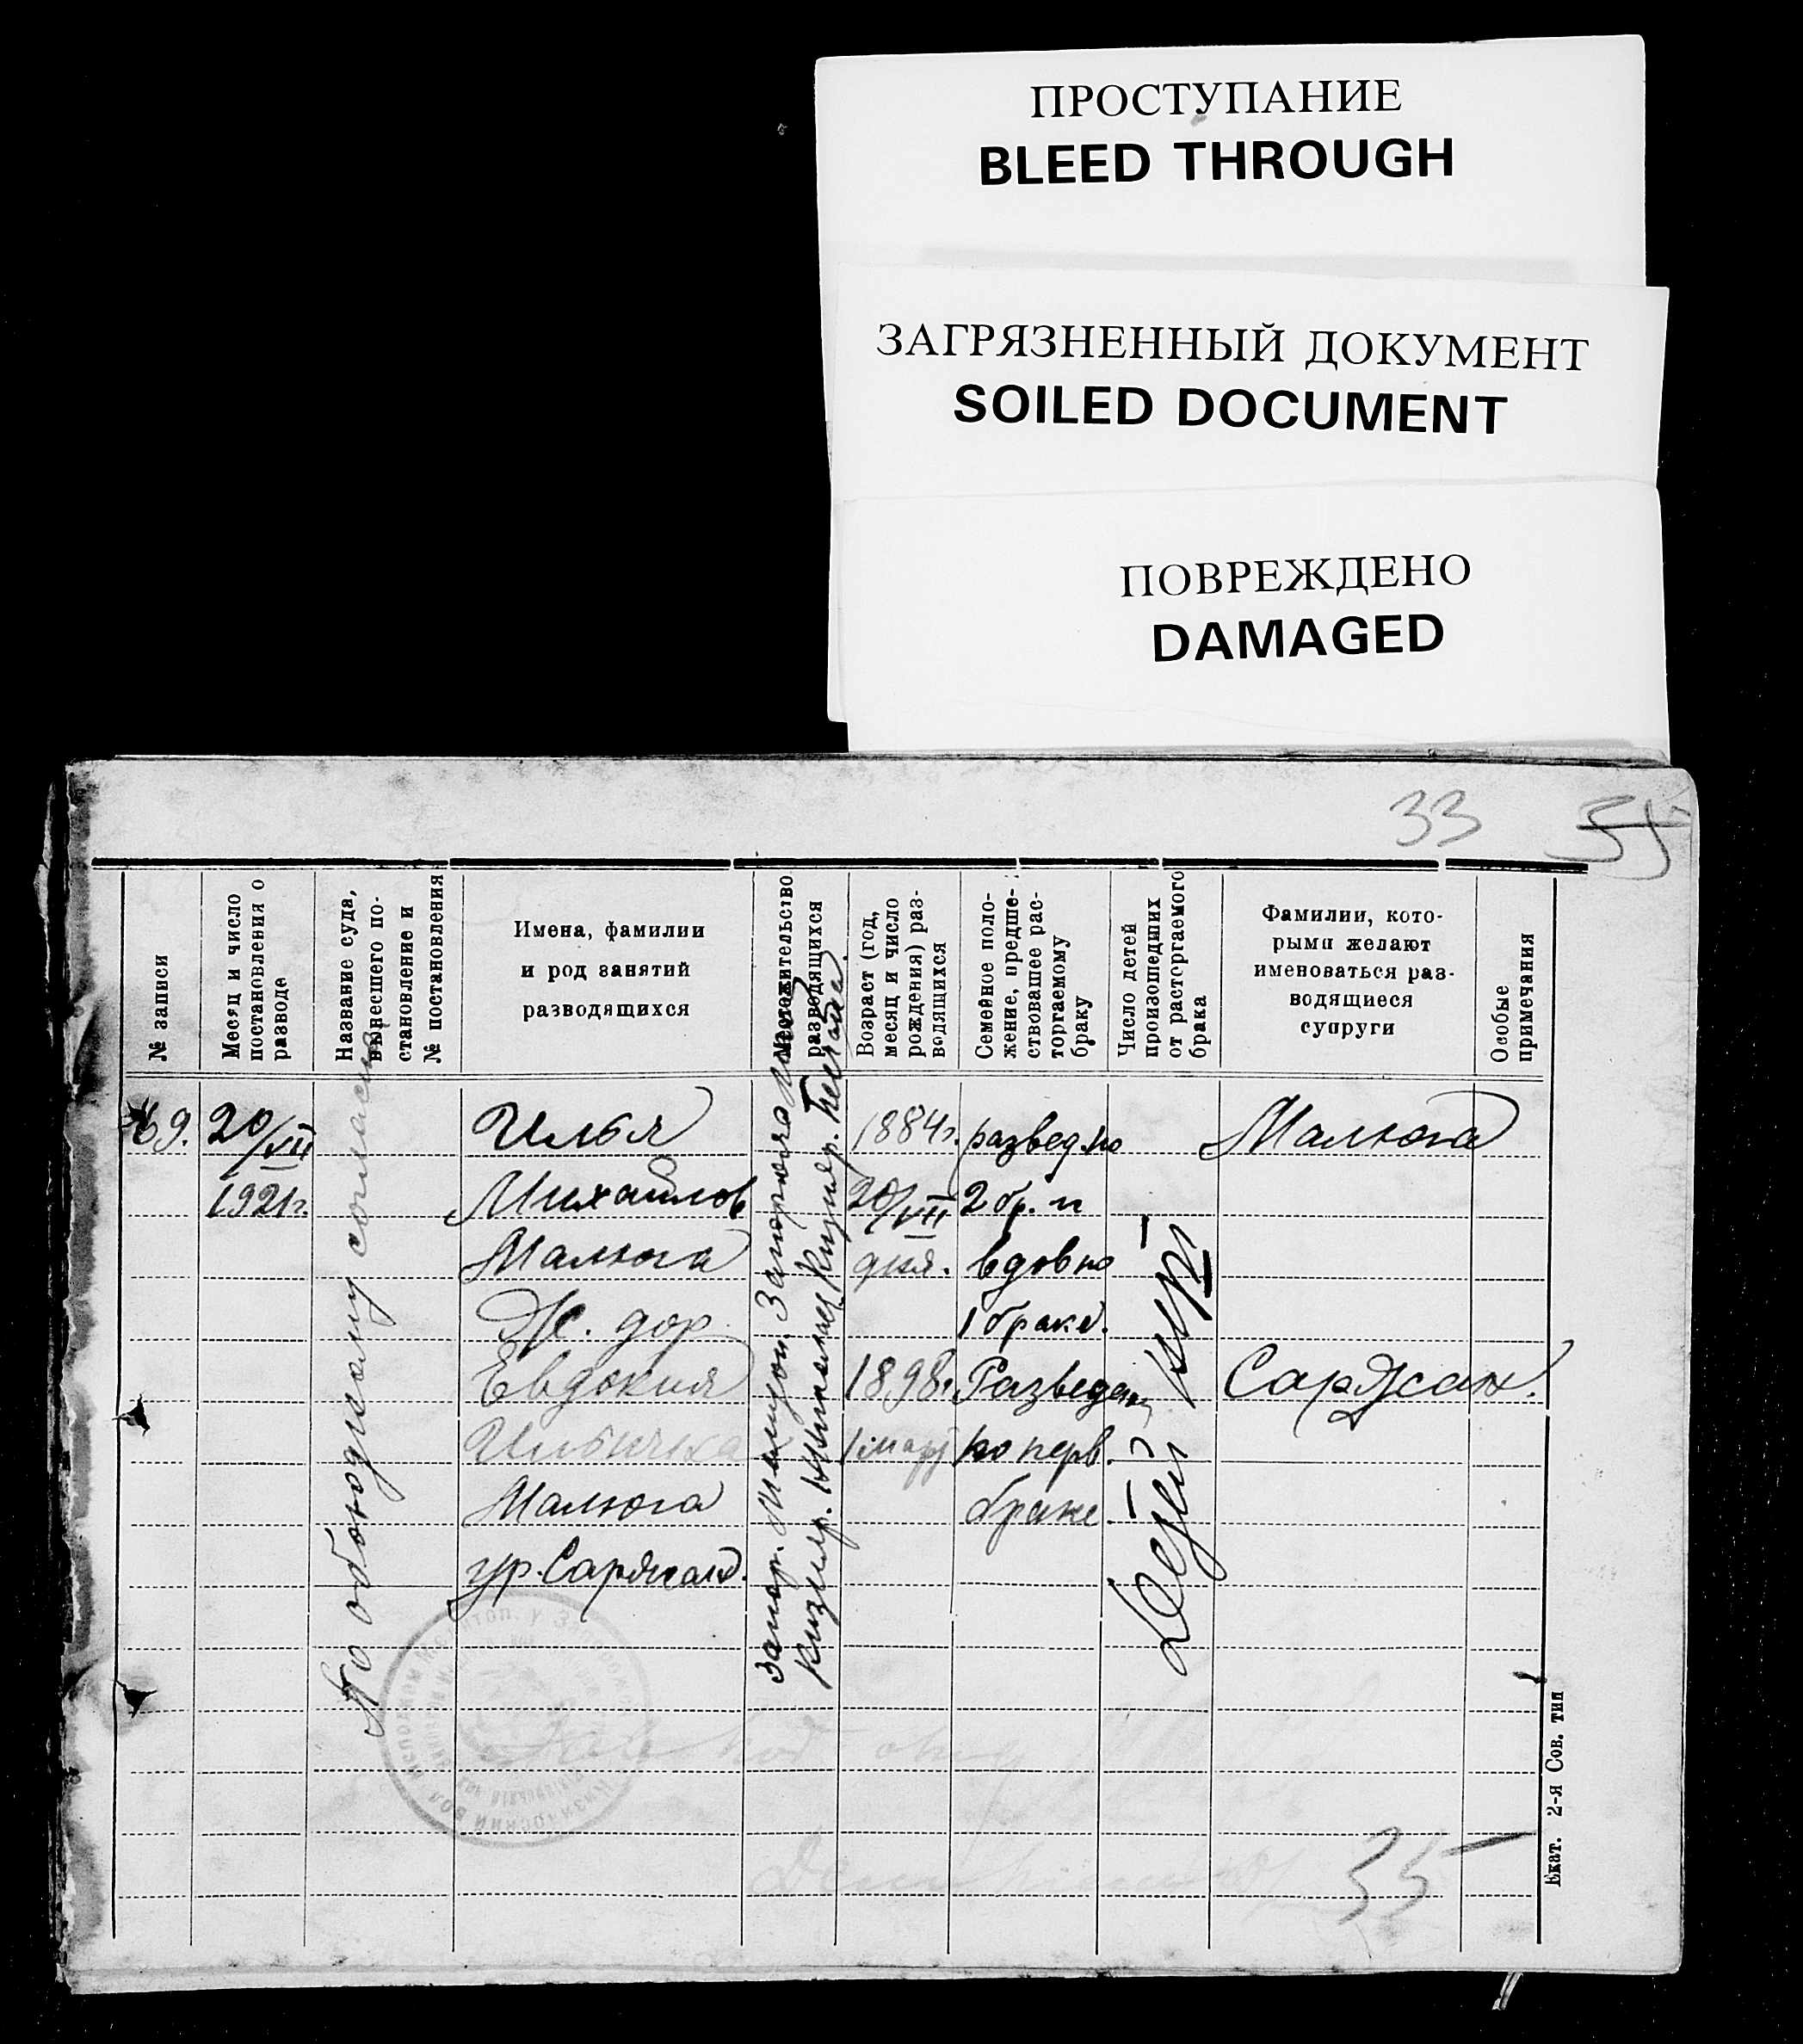 ПРОСТУПАНИЕ
BLEED THROUGH
ЗАГРЯЗНЕННЫЙ ДОКУМЕНТ
SOILED DOCUMENT
ПОВРЕЖДЕНО
DAMAGED
33 35
№ записи
Месяц и число
постановления о
разводе
Название суда,
вынесшего по-
становление и
№ постановления
Имена, фамилии
и род занятий
разводящихся
Местожительство
разводящихся
Возраст (год,
месяц и число
рождения) раз-
водящихся
Семейное поло-
жение, предше-
ствовавшее рас-
торгаемому
браку
Число детей
происшедших
от расторгаемого
брака
Фамилии, кото-
рыми желают
именоваться раз-
водящиеся
супруги
Особые
примечания
69.
20/VII
1921г.
По обоюдному согласию
Илья
Михайлов
Малюга
Ж. дор.
Евдокия
Малюга
ур. Сарджан.
1884г.
20/VII
дня.
1898г.
развед. по
2 бр. и
вдов по
1 браке.
Разведен
по перв.
браке.
Детей нет
Малюга
Сарджан.
35
Екат. 2-я Сов. тип